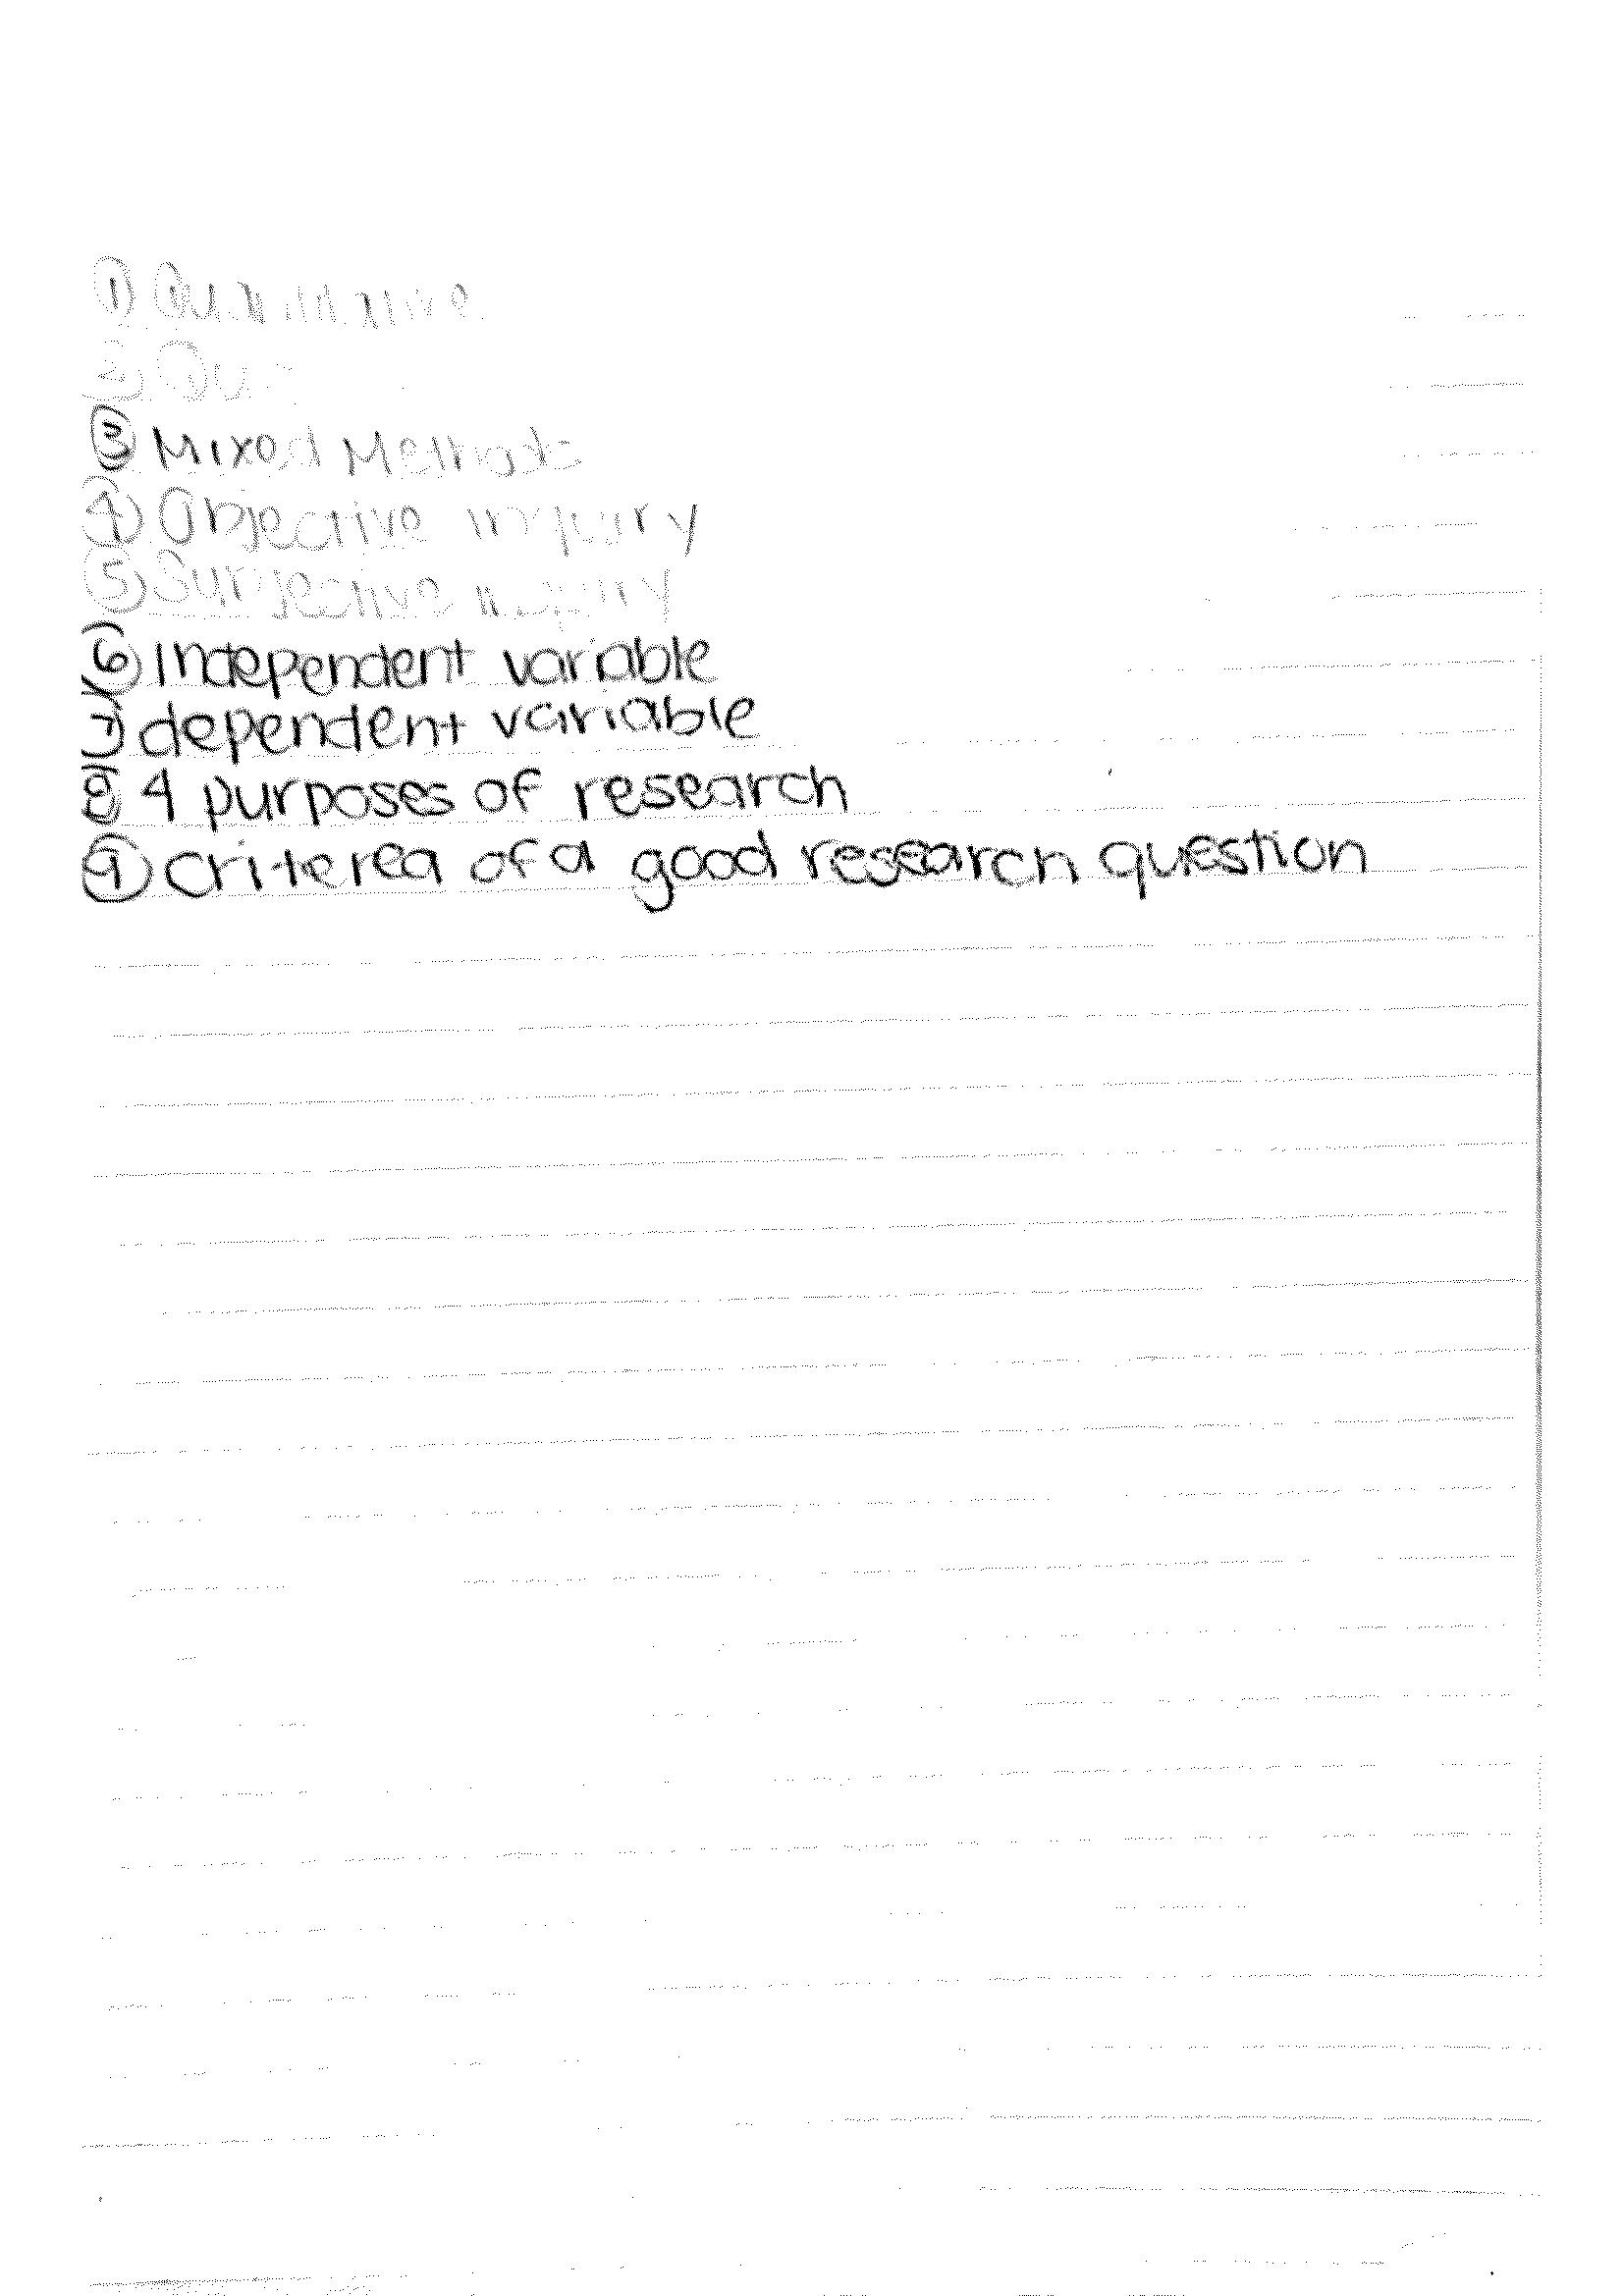 ① Quantitative
②
③ Mixed Methods
④ Objective inquiry
⑤ Subjective inquiry
⑥ Independent variable
⑦ dependent variable
⑧ 4 purposes of research
⑨ criterea of a good research question